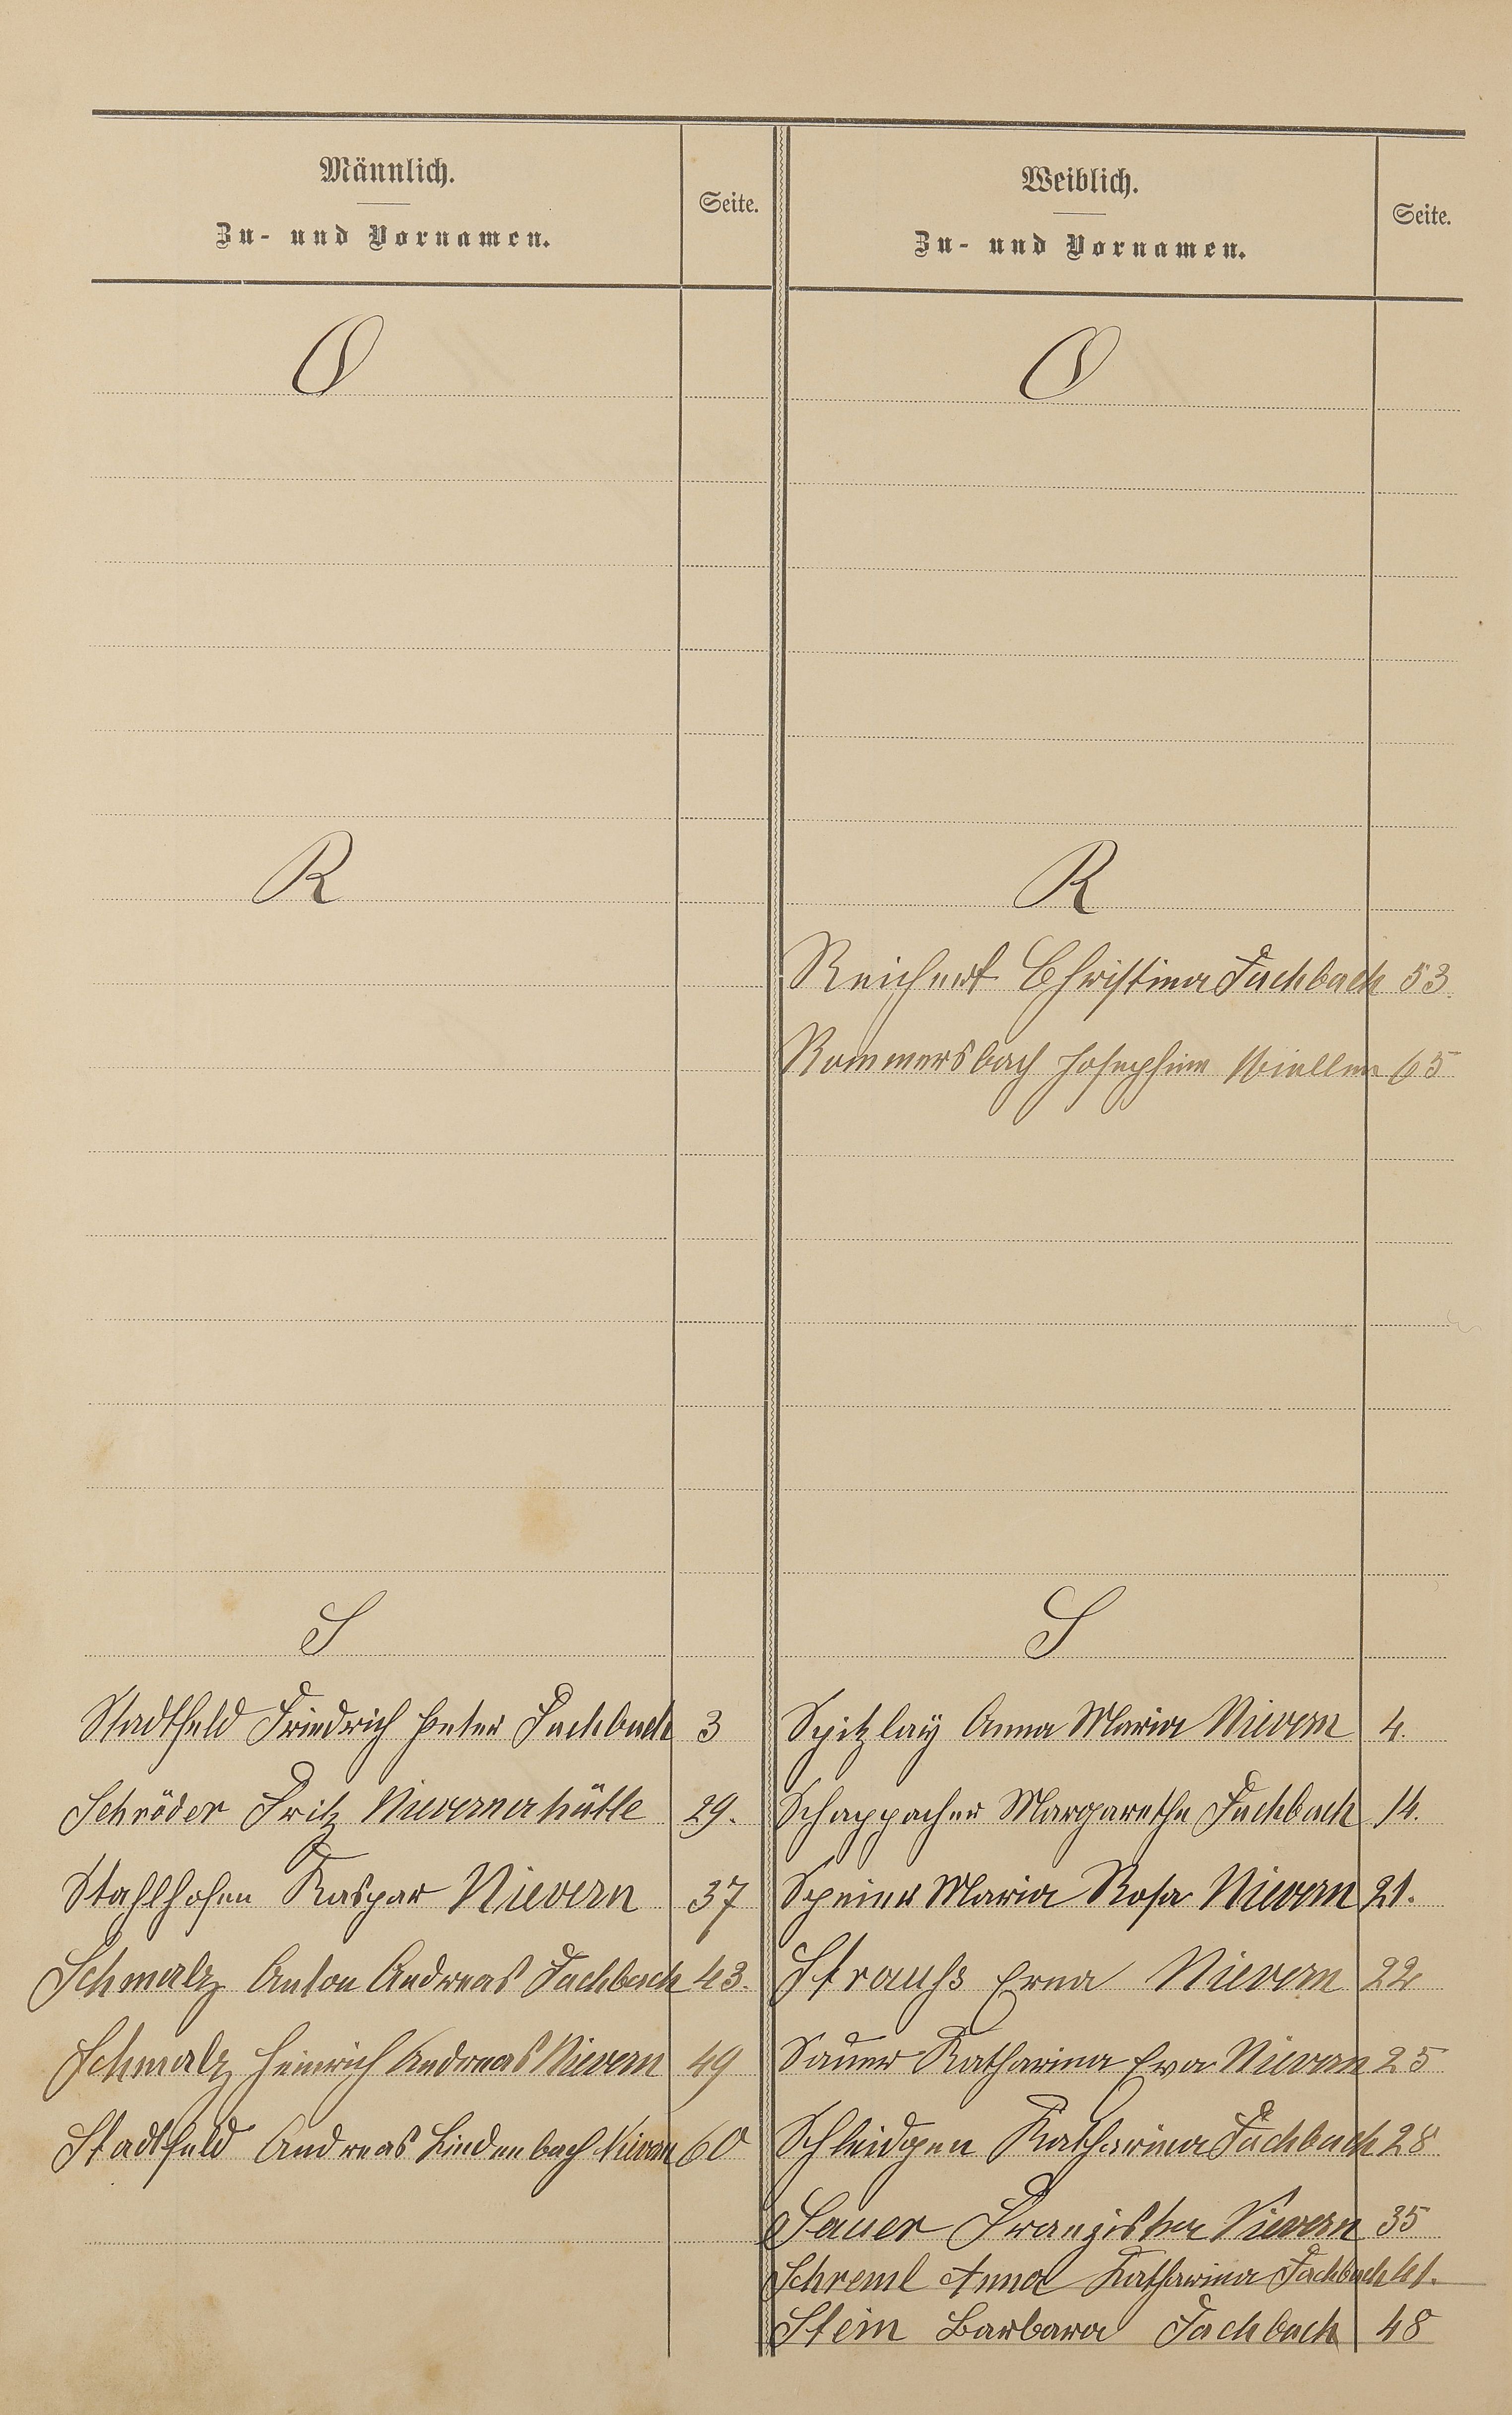 Männlich.
Zu- und Vornamen.
Seite.
O
R
S
Stadtfeld Friedrich Peter Fachbach 3
Schröder Fritz Nievernerhütte 29.
Stahlhofen Kaspar Nievern 37
Schmalz Anton Andreas Fachbach 43.
Schmalz Heinrich Andreas Nievern 49
Stadtfeld Andreas Lindenbach Nievern 60
Weiblich.
Zu- und Vornamen.
Seite.
O
R
Reichert Christina Fachbach 53.
Rommersbach Josephine 65
S
Spitzlay Anna Maria Nievern 4.
Schappacher Margarethe Fachbach 14.
Speier Maria Rosa Nievern 21.
Strauß Erna Nievern 22
Sauer Katharina Eva Nievern 25
Schleidgen Katharina Fachbach 28
Sauer Franziska Nievern 35
Schreml Anna Katharina Fachbach 41.
Stein Barbara Fachbach 48